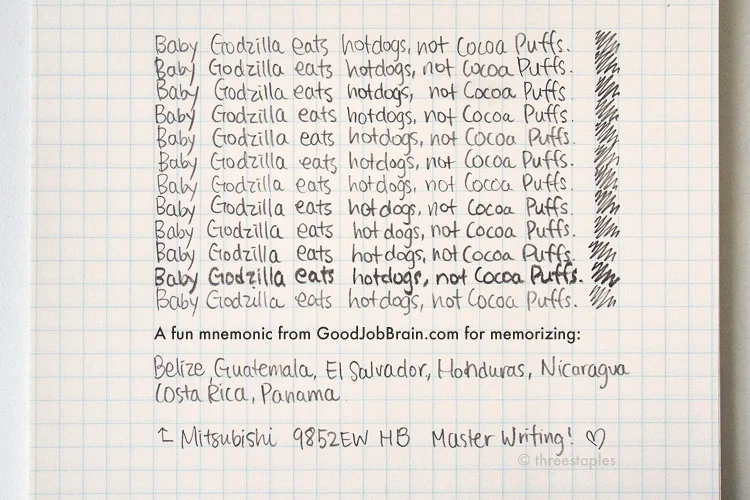 Baby Godzilla eats hotdogs, not Cocoa Puffs.
Baby Godzilla eats hotdogs, not Cocoa Puffs.
Baby Godzilla eats hotdogs, not Cocoa Puffs.
Baby Godzilla eats hotdogs, not Cocoa Puffs.
Baby Godzilla eats hotdogs, not Cocoa Puffs.
Baby Godzilla eats hotdogs, not Cocoa Puffs.
Baby Godzilla eats hotdogs, not Cocoa Puffs.
Baby Godzilla eats hotdogs, not Cocoa Puffs.
Baby Godzilla eats hotdogs, not Cocoa Puffs.
Baby Godzilla eats hotdogs, not Cocoa Puffs.
Baby Godzilla eats hotdogs, not Cocoa Puffs.
Baby Godzilla eats hotdogs, not Cocoa Puffs.
A fun mnemonic from GoodJobBrain.com for memorizing:
Belize, Guatemala, El Salvador, Honduras, Nicaragua
Costa Rica, Panama
↑ Mitsubishi 9852EW HB Master Writing! ♡
© threestaples